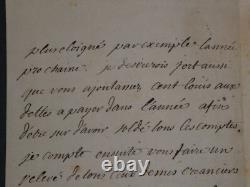 plus eloigné par exemple lannée
prochaine. je desirerois fort aussi
que vous ajoutamez cent louis aux
dettes a payer dans lannée afin
dêtre sur davoir soldé tous les comptes,
je compte ensuite vous faire un
relevé de tous mes creanciers